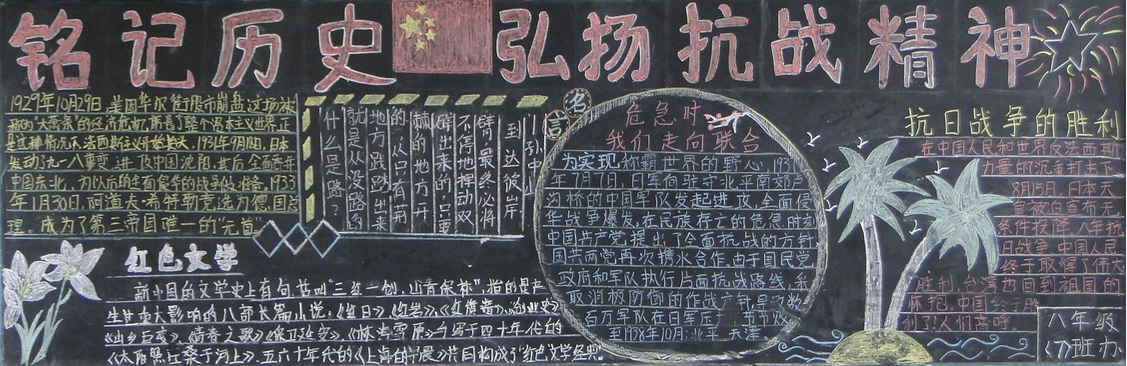 铭记历史 弘扬抗战精神
1929年10月29日,美国华尔街股市崩盘,这场被
的"大萧条"的经济危机席卷了整个资本主义世界,正
1931年9月18日,日本
发动九一八事变,进攻中国沈阳,其后全面吞并
中国东北,为以后的全面侵华的战争做准备。1933
年1月30日,阿道夫·希特勒竞选为德国总
理。成为了第三帝国唯一的"元首"
到达彼岸
臂,最终必将
不停地挥动双
辟出来的,只要
棘的地方开
的,从只有荆
地方践踏出来
就是从没路的
什么是路,
名言
危急时
我们走向联合
为实现称霸世界的野心,193
年7月7日,日军向驻守北平南郊卢
沟桥的中国军队发起进攻,全面侵
华战争爆发,在民族存亡的危急时刻
中国共产党提出了全面抗战的方针
国共两党再次携水合作,由于国民党
政府和军队执行片面抗战路线,采
取消极防御的作战方针,导致数
百万军队在日军
至1938年10月,北平 天津
抗日战争的胜利
在中国人民和世界反法西斯
力量的沉重打击下
8月15日,日本天
皇被迫宣布无
条件投降,八年抗
日战争,中国人民
终于取得了伟大
胜利,台湾也回到祖国的
怀抱,中国终于胜
利了!人们高呼
八年级
(7)班办
红色文学
新中国的文学史上有句话叫"三红一创,山青保林",指的是产
生过重大影响的八部长篇小说:《红日》《红岩》《红旗谱》《创业史》
《山乡巨变》《青春之歌》《保卫延安》《林海雪原》与写于四十年代的
《太阳照在桑干河上》,五六十年代的《上海的早晨》共同构成了"红色文学经典